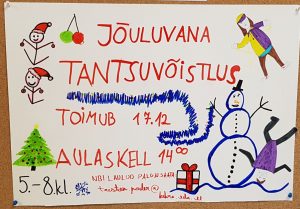 JÕULUVANA
TANTSUVÕISTLUS
TOIMUB 17.12
AULAS KELL 14⁰⁰
5.-8.kl.
NB! LAULUD PALUN SAATA